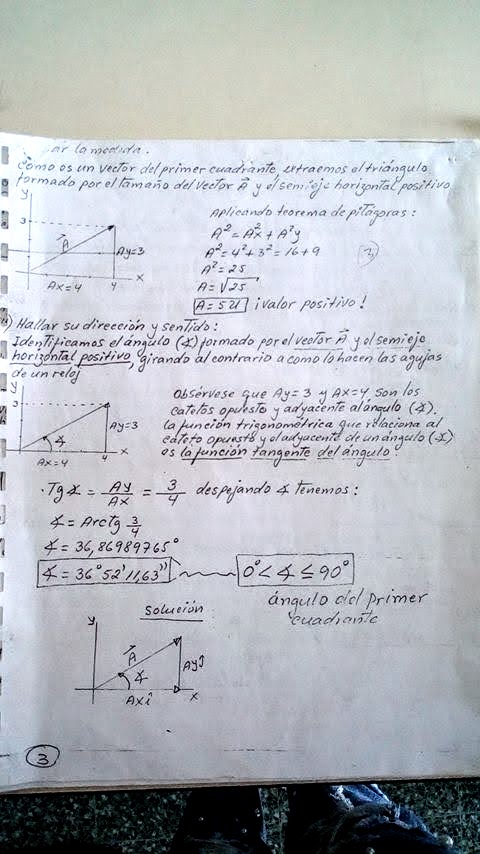 ar la medida.
Como es un vector del primer cuadrante, extraemos el triángulo
formado por el tamaño del vector A⃗ y el semieje horizontal positivo
y
3
A⃗
Ay=3
Ax=4
4
x
Aplicando teorema de pitágoras:
A² = A²x + A²y
A² = 4² + 3² = 16 + 9
A² = 25
A = √25
A = 5 u ¡valor positivo!
) Hallar su dirección y sentido:
Identificamos el ángulo (∡) formado por el vector A⃗ y el semieje
horizontal positivo, girando al contrario a como lo hacen las agujas
de un reloj
y
3
∡
Ay=3
Ax=4
4
x
Obsérvese que Ay=3 y Ax=4 son los
catetos opuesto y adyacente al ángulo (∡).
la función trigonométrica que relaciona al
cateto opuesto y el adyacente de un ángulo (∡)
es la función tangente del ángulo.
· Tg ∡ = Ay/Ax = 3/4 despejando ∡ tenemos:
∡ = Arctg 3/4
∡ = 36,86989765°
∡ = 36° 52' 11,63'' 0° < ∡ ≤ 90°
ángulo del primer
cuadrante
Solución
y
A⃗
∡
Ayĵ
Axî
x
3